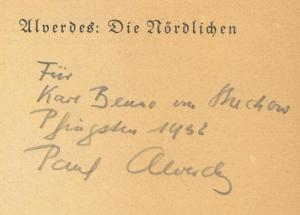 Alverdes: Die Nördlichen
Für
Karl Benno von Mechow
Pfingsten 1932
Paul Alverdes